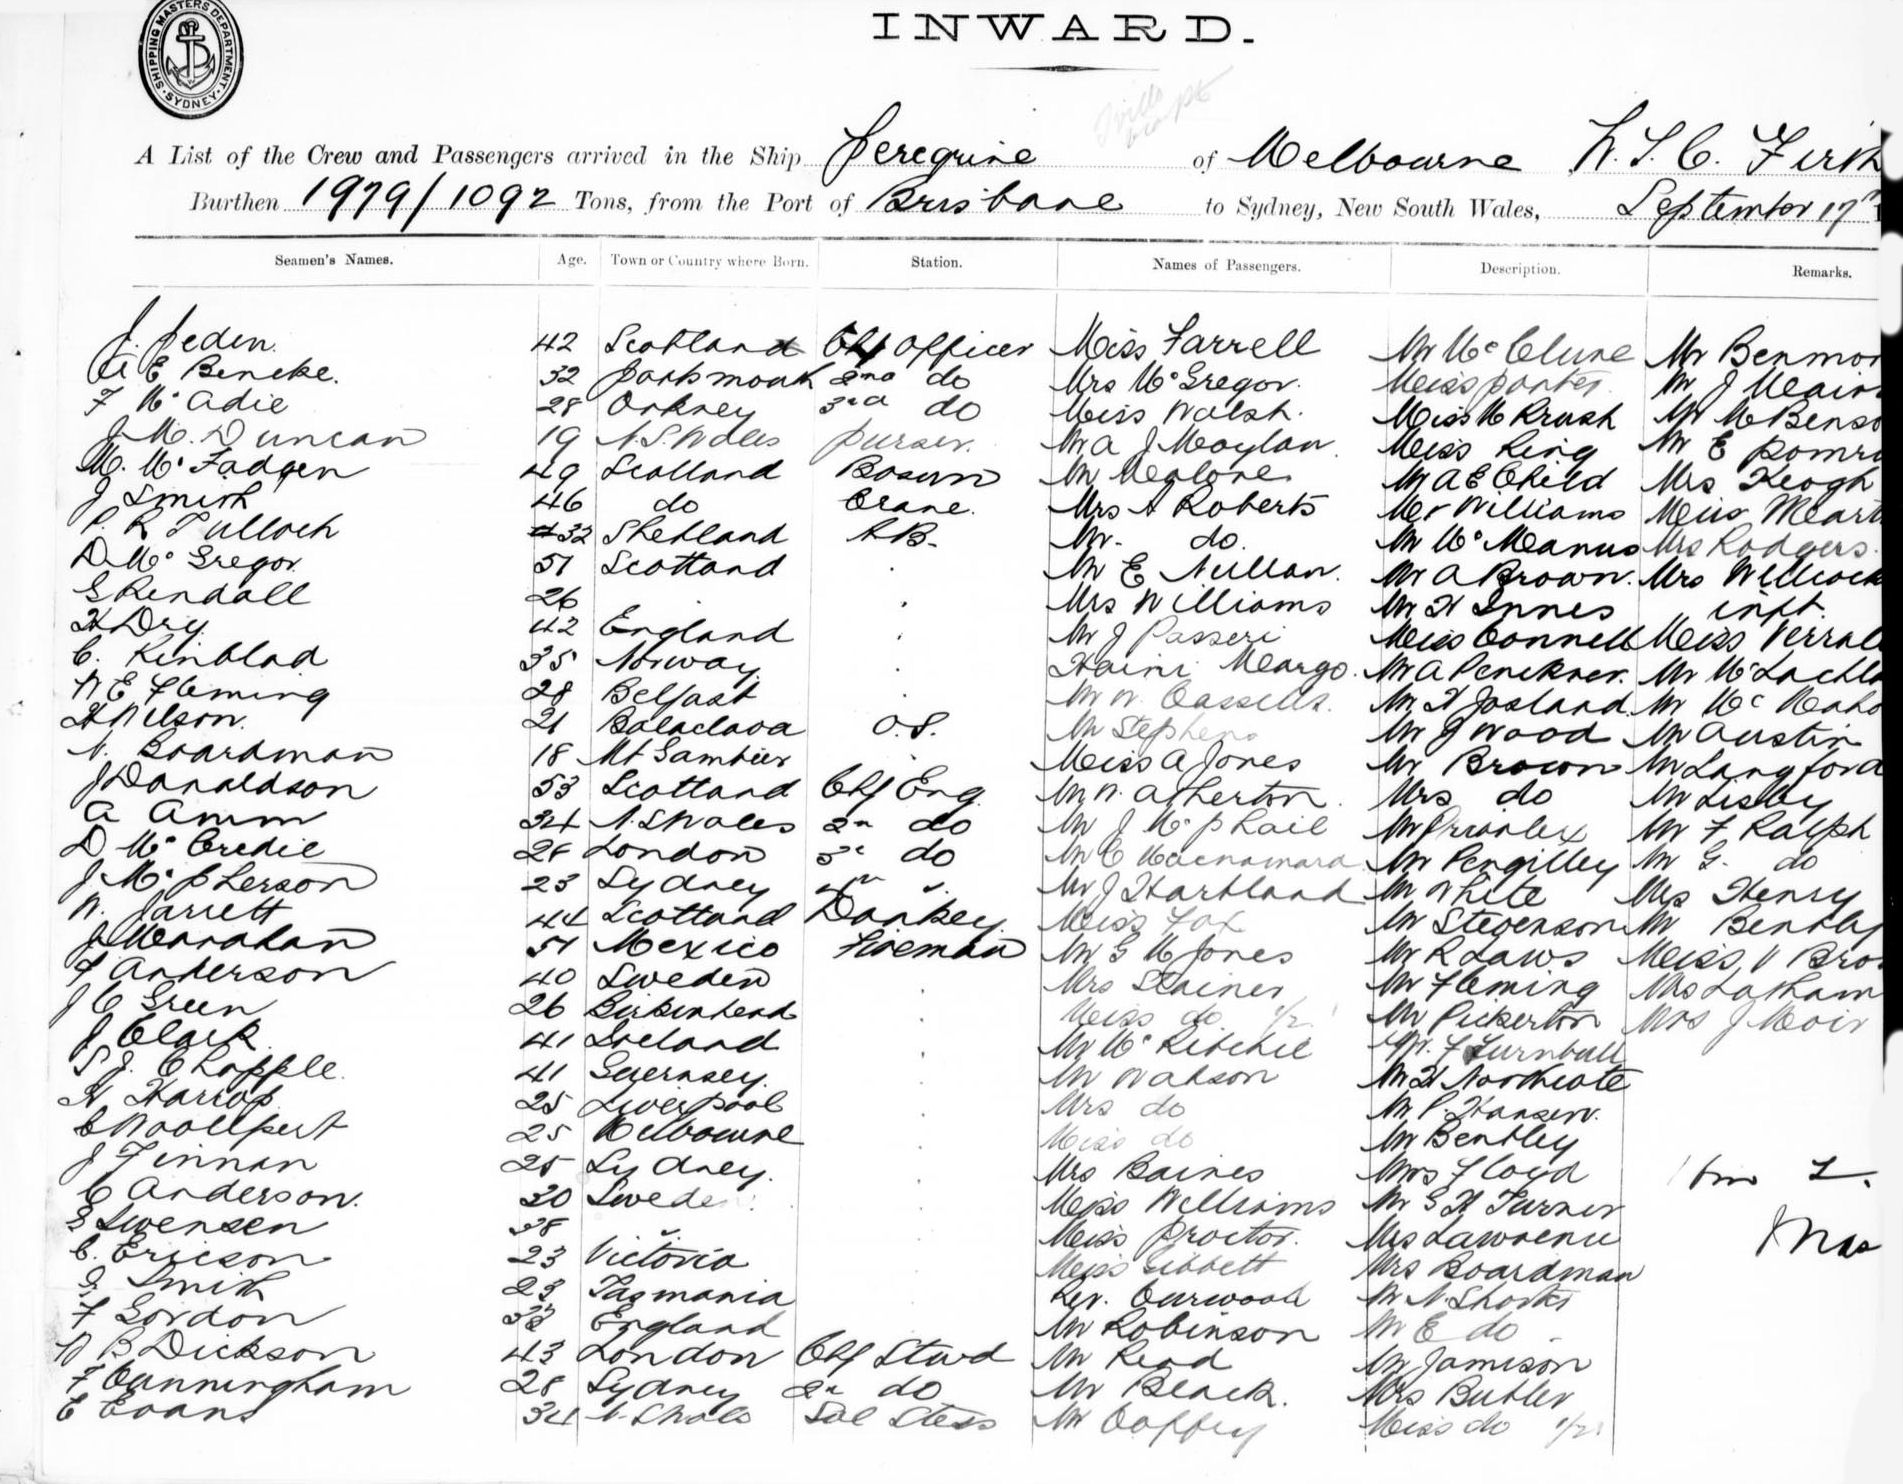 SHIPPING MASTERS DEPARTMENT. SYDNEY.
INWARD.
A List of the Crew and Passengers arrived in the Ship Peregrine of Melbourne W. T. C. Firth
Burthen 1979/1092 Tons, from the Port of Brisbane to Sydney, New South Wales, September 17th 1
Seamen's Names. Age. Town or Country where Born. Station. Names of Passengers. Description. Remarks.
J. Peden. 42 Scotland Chf Officer Miss Farrell Mr McClune Mr Benmor
A E Beneke. 32 Portsmouth 2nd do Mrs McGregor. Miss Porter. Mr J
F McAdie 28 Orkney 3rd do Miss Walsh. Miss M Krush Mr M Benso
J. M. Duncan 19 N.S. Wales Purser. Mr A J Moylan Miss King Mr E Pomro
M. McFadgen 49 Scotland Bosun Mr Malone Mr A E Child Mrs Keogh
J Smith 46 do Crane. Mrs A Roberts Mr Williams Miss
P. R Tulloch 32 Shetland AB. Mr. do. Mr McManus Mrs Rodgers.
D McGregor 51 Scotland Mr E Nullan. Mr A Brown. Mrs Willcock
G Rendall 26 Mrs Williams Mr H Innes inft.
H Dry 42 England Mr J Passeri Miss Connell Miss Verral
C. Kinblad 35 Norway Haini Margo. Mr A Penckner. Mr McLachla
W E Fleming 28 Belfast Mr W. Cassells. Mr H Josland Mr McMaho
H Wilson. 21 Balaclava O.S. Mr Stephens Mr J Wood Mr Austin
N. Boardman 18 Mt Gambier Miss A Jones Mr Brown Mr Langford
J Donaldson 53 Scotland Chf Eng. Mr W. Atherton. Mrs do Mr Lisby
A Amm 34 N.S Wales 2n do Mr J McPhail Mr Mr F Ralph
D McCredie 28 London 3r do Mr C Macnamara Mr Pengilley Mr G. do
J McPherson 23 Sydney 4th Mr J Hartland Mr White Mrs Henry
W. Jarrett 44 Scotland Donkey Miss Fox Mr Stevenson Mr Bentley
J Monahan 51 Mexico Fireman Mr G M Jones Mr R Laws Miss V Bro
F Anderson 40 Sweden Mrs Stainer Mr Fleming Mrs Latham
J C Green 26 Birkenhead Miss do 1/2 Mr Pickerton Mrs J Moir
J Clark 41 Ireland Mr McRitchie Mr. F Turnbull
S J. Chapple. 41 Guernsey. Mr Watson Mr H Northcote
H Harrop 25 Liverpool Mrs do Mr P. Hansen.
C Woollpert 25 Melbourne Miss do Mr Bentley
J Finnan 25 Sydney. Mrs Baines Mrs Floyd
C Anderson. 30 Sweden Miss Williams Mr G H Turner
S Swensen 38 " Miss Proctor. Mrs Lawrence
C. Ericson 23 Victoria Miss Gibbett Mrs Boardman
G Smith 23 Tasmania Rev. Curwood Mr N. Shorter
F Gordon 33 England Mr Robinson Mr E do
W B Dickson 43 London Chf Stwd Mr Read Mr Jamison
F Cunningham 28 Sydney 2n do Mr Black. Mrs Butler
E Evans 34 N. S Wales Sal Stess Mr Caffey Miss do 1/2